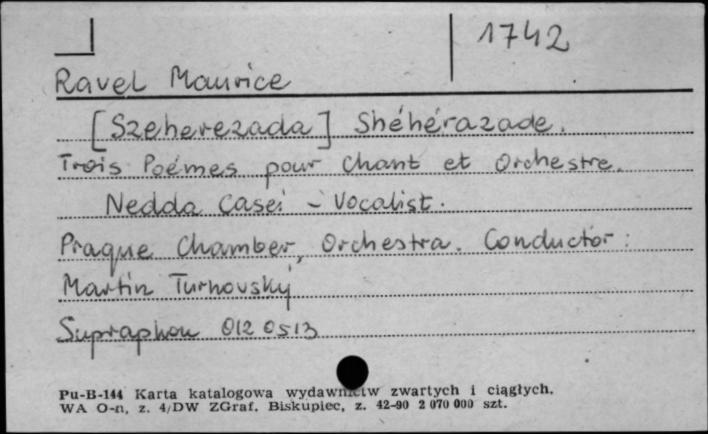 1742
Ravel Maurice
[Szeherezada] Shéhérazade.
Trois Poémes pour chant et Orchestre.
Nedda Casei - Vocalist.
Prague Chamber, Orchestra. Conductor:
Martin Turnovský
Supraphon 012 0513
Pu-B-144 Karta katalogowa wydawnictw zwartych i ciągłych.
WA O-n, z. 4/DW ZGraf. Biskupiec, z. 42-90 2 070 000 szt.